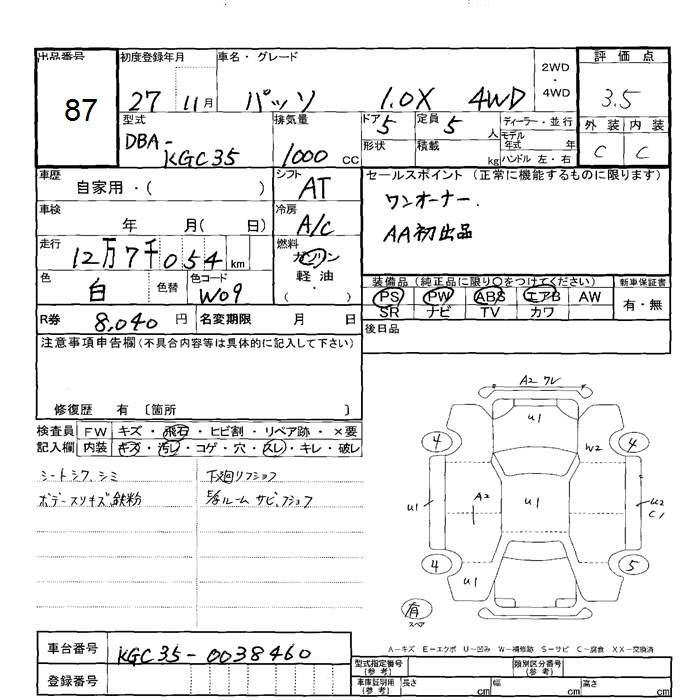 出品番号
87
初度登録年月
27 11月
車名・グレード
パッソ 1.0X 4WD
2WD
・
4WD
評価点
3.5
外装 内装
C C
型式
DBA-
KGC35
排気量
1000 cc
ドア 5
形状
定員 5 人
積載 kg
ディーラー・並行
モデル年式 年
ハンドル 左・右
車歴
自家用・( )
シフト
AT
車検
年 月( 日)
冷房
A/C
走行
12万7千054 km
燃料
ガソリン
軽油
( )
色
白
色替
色コード
W09
セールスポイント (正常に機能するものに限ります)
ワンオーナー.
AA初出品
装備品 (純正品に限り○をつけてください)
PS PW ABS エアB AW
SR ナビ TV カワ
新車保証書
有・無
R券 8,040 円
名変期限 月 日
後日品
注意事項申告欄 (不具合内容等は具体的に記入して下さい)
修復歴 有 〔箇所 〕
検査員
記入欄
FW キズ・飛石・ヒビ割・リペア跡・×要
内装 キズ・汚レ・コゲ・穴・スレ・キレ・破レ
シートシワ.シミ
ボデースリキズ鉄粉
下廻リフショフ
ルーム サビ,フショフ
A2 ワレ
U1
4
4
W2
U1
A2
U1
U2
C1
4
5
U1
有
スペア
A－キズ E－エクボ U－凹み W－補修跡 S－サビ C－腐食 XX－交換済
車台番号 KGC35-0038460
登録番号
型式指定番号
(参考)
類別区分番号
(参考)
車庫証明用
(参考)
長さ cm 幅 cm 高さ cm